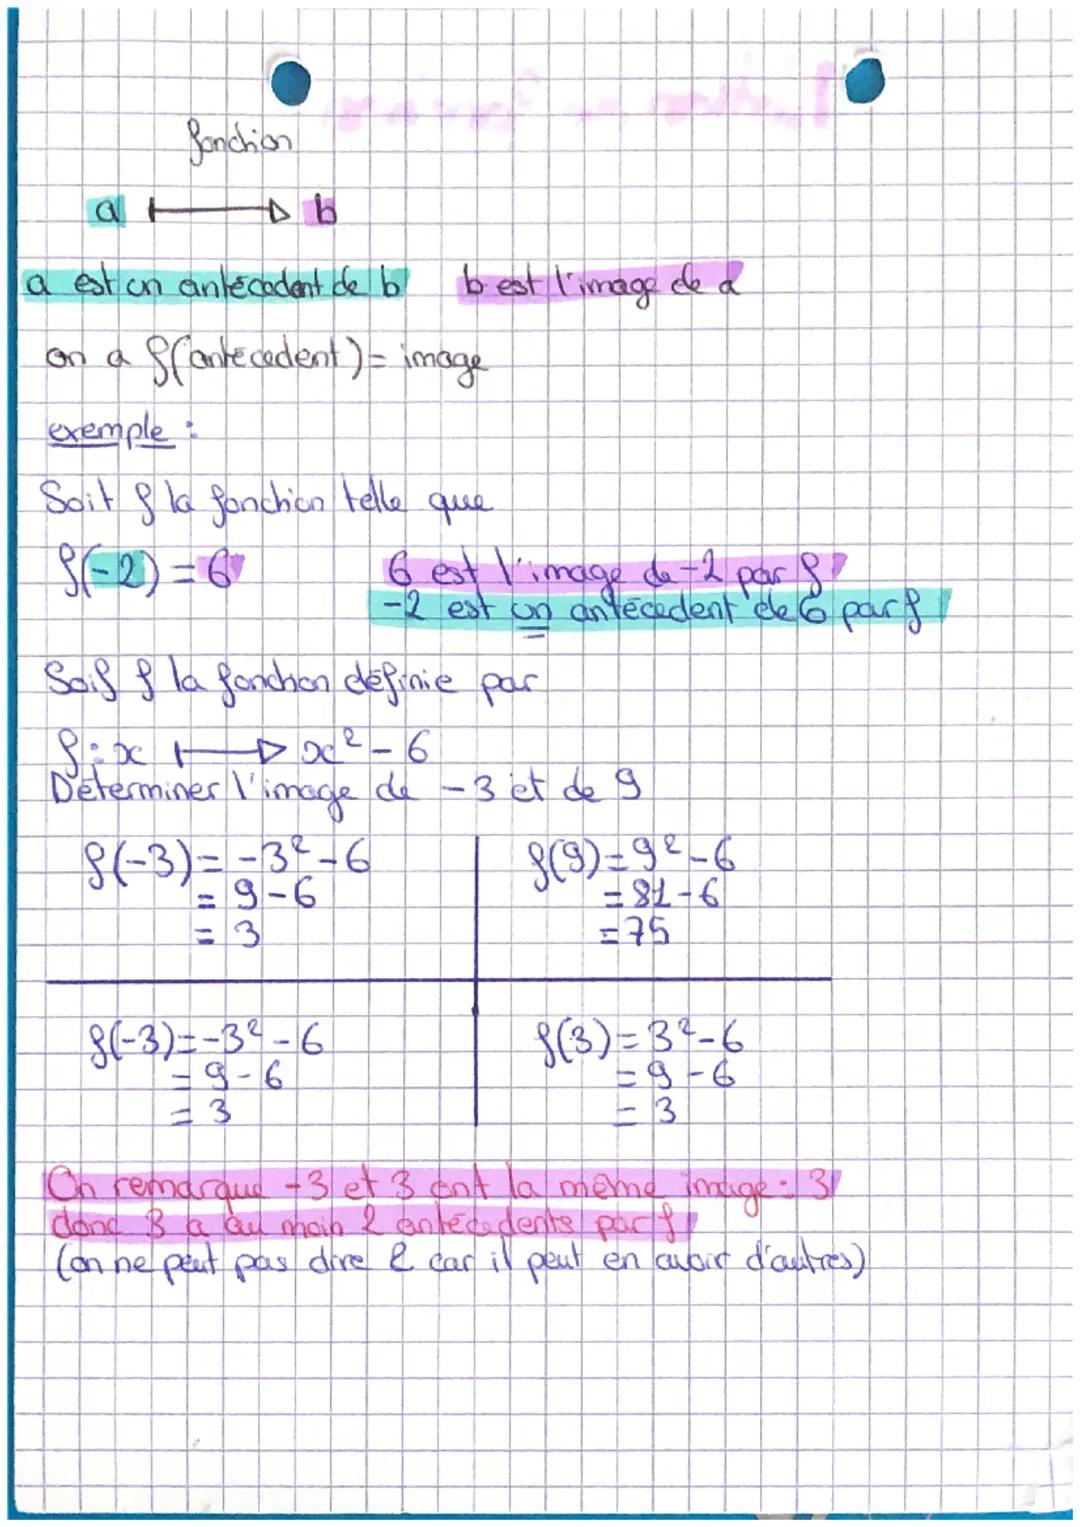 fonction
a ⟼ b
a est un antécédent de b b est l'image de a
on a f(antécédent) = image
exemple :
Soit f la fonction telle que
f(-2) = 6
6 est l'image de -2 par f
-2 est un antécédent de 6 par f
Soif f la fonction définie par
f : x ⟼ x² - 6
Déterminer l'image de -3 et de 9
f(-3) = -3² - 6
= 9 - 6
= 3
f(9) = 9² - 6
= 81 - 6
= 75
f(-3) = -3² - 6
= 9 - 6
= 3
f(3) = 3² - 6
= 9 - 6
= 3
On remarque -3 et 3 ont la même image : 3
donc 3 a au moin 2 antécédents par f
(on ne peut pas dire 2 car il peut en avoir d'autres)